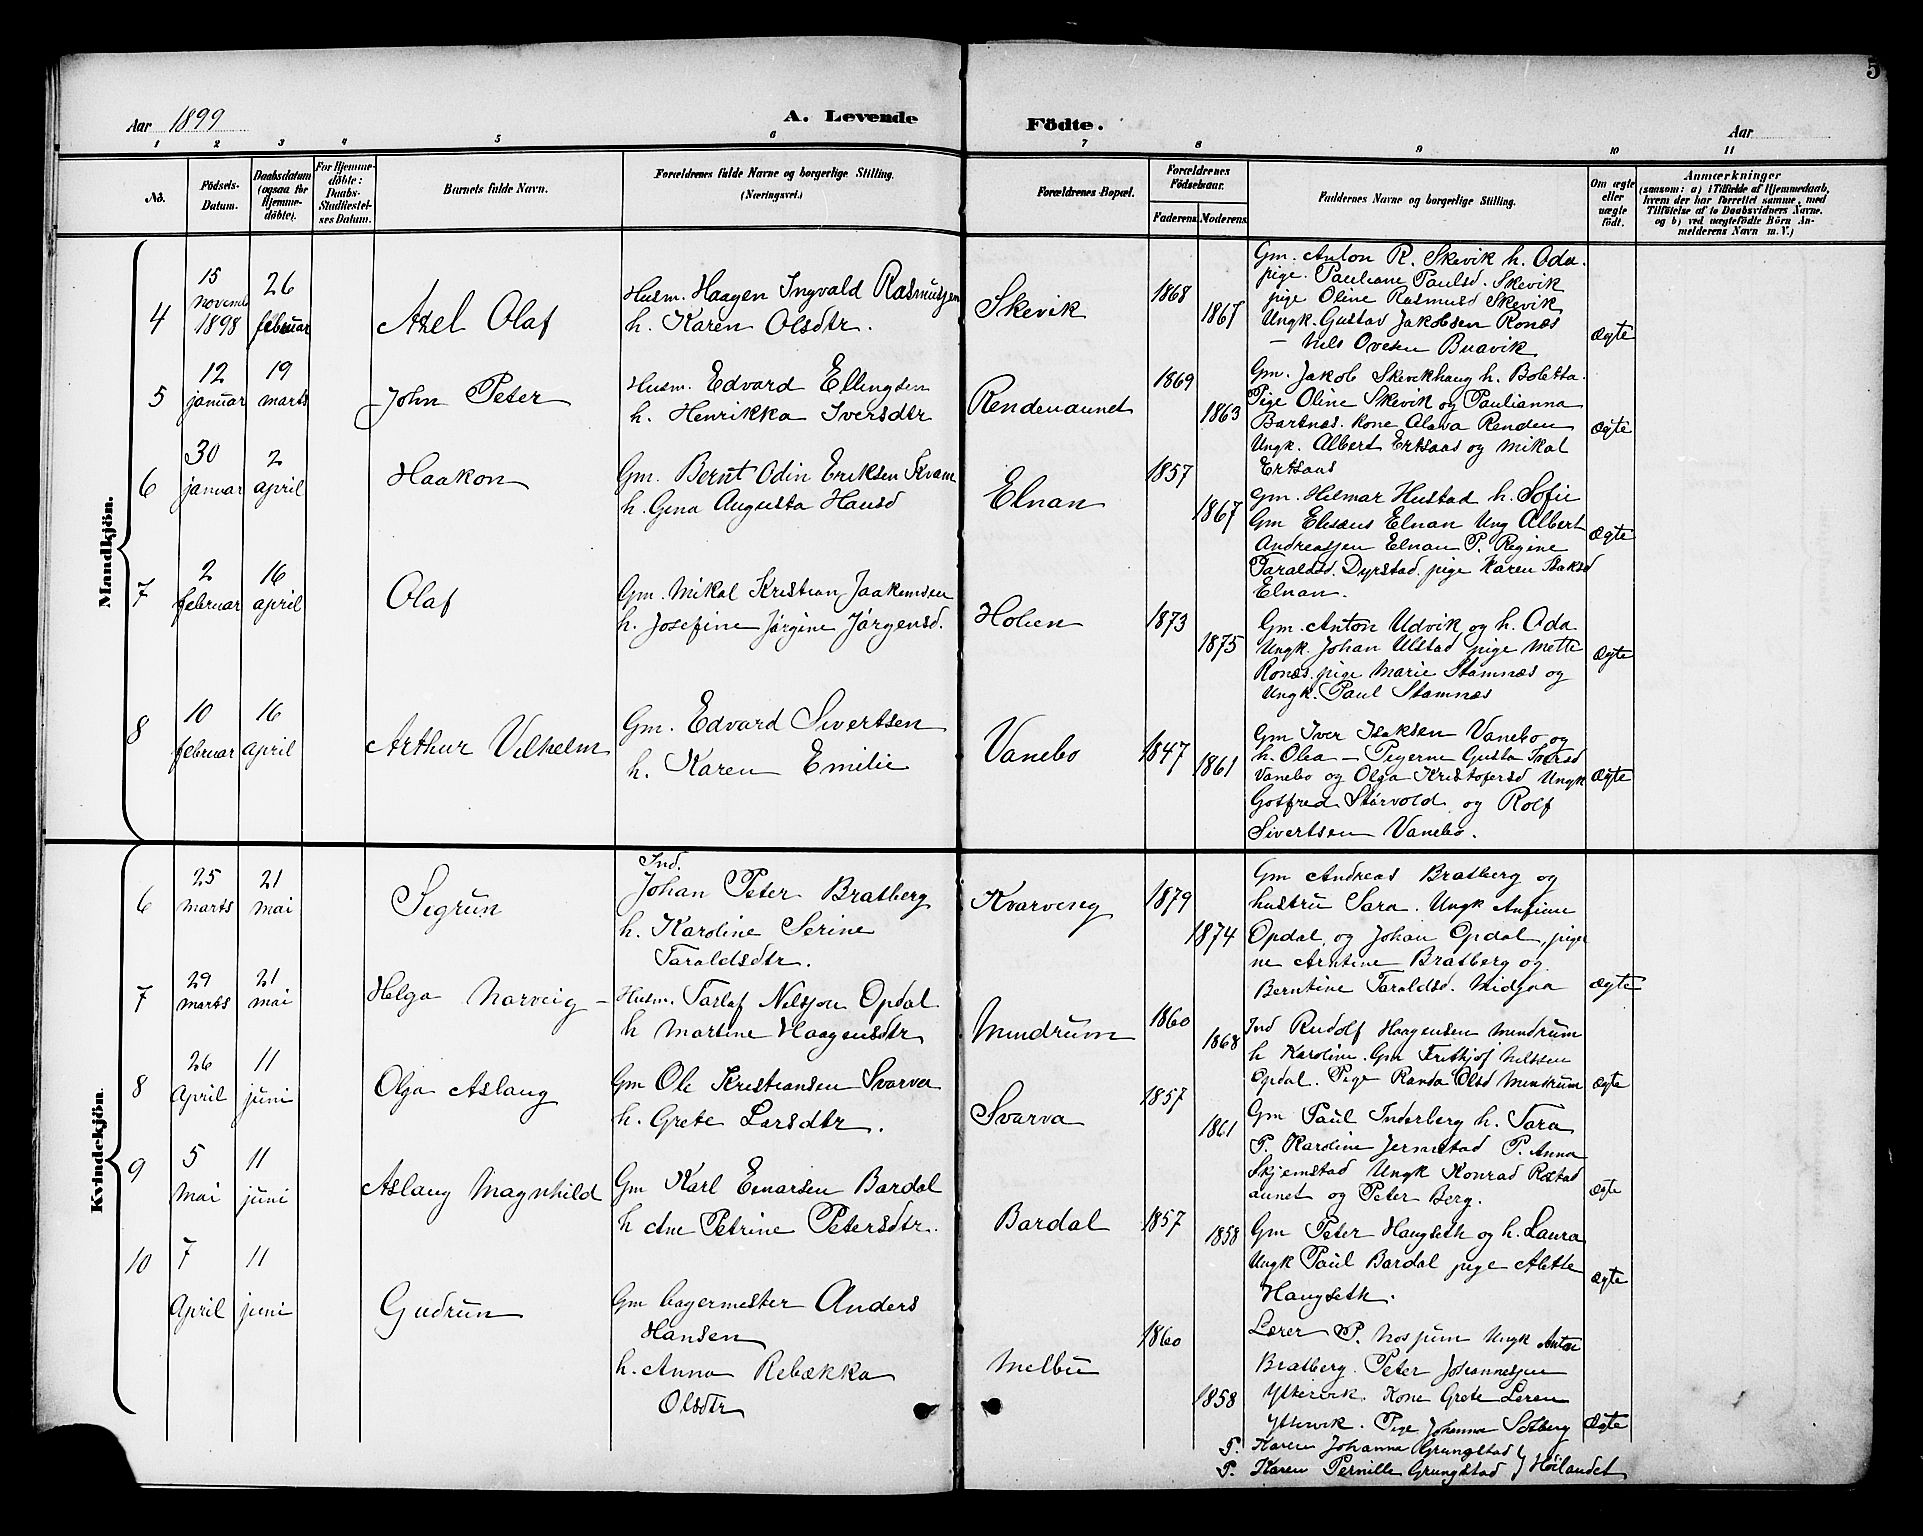 5
Aar 1899
A. Levende Födte.
Aar
1 2 3 4 5 6 7 8 9 10 11
No.
Födsels-Datum.
Daabsdatum (ogsaa for Hjemmedöbte).
For Hjemmedöbte: Daabs-Stadfæstelses Datum.
Barnets fulde Navn.
Forældrenes fulde Navne og borgerlige Stilling. (Næringsvei.)
Forældrenes Bopæl.
Forældrenes Födselsaar.
Faderens Moderens
Faddernes Navne og borgerlige Stilling.
Om ægte eller uægte födt.
Anmærkninger
(saasom: a) i Tilfælde af Hjemmedaab,
hvem der har forrettet samme, med
Tilföielse af to Daabsvidners Navne,
og b) ved uægtefödte Börn An-
melderens Navn m. V.)
Mandkjön.
4
15 novemb 1898
26 februar
Axel Olaf
Husm. Haagen Ingvald Rasmussen
h. Karen Olsdtr.
Skevik
1868
1867
Gm. Anton R. Skevik h. Oda.
pige. Pauliane Paulsd. Skevik
pige Oline Rasmusd Skevik
Ungk. Gustav Jakobsen Ronæs
— Nils Ovesen Buavik
Ægte
5
12 januar
19 marts
John Peter
Husm. Edvard Ellingsen
h. Henrikka Iversdtr
Rendenaunet
1869
1863
Gm. Jakob Skevikhaug h. Boletta.
Pige Oline Skevik og Paulianna
Bartnæs. Kone Olava Renden
Ungk. Albert Ertsaas og Mikal
Ertsaas
Ægte
6
30 januar
2 april
Haakon
Gm. Bernt Odin Eriksen Kvam
h. Gina Augusta Hansd
Elnan
1857
1867
Gm. Helmar Hustad h. Sofie
Gm Elisæus Elnan Ung Albert
Andreassen Elnan P. Regine
Taraldsd. Dyrstad. pige Karen Isaksd
Elnan.
Ægte
7
2 februar
16 april
Olaf
Gm. Mikal Kristian Jaakimsen
h. Josefine Jørgine Jørgensd.
Holien
1873
1875
Gm. Anton Udvik og h. Oda.
Ungk. Johan Ulstad pige Mette
Ronæs. pige Marie Stamnæs og
Ungk. Paul Stamnæs
Ægte
8
10 februar
16 april
Arthur Vilhelm
Gm. Edvard Sivertsen
h. Karen Emilie
Vanebo
1847
1861
Gm Iver Isaksen Vanebo og
h. Olea — Pigerne Gusta Iversd
Vanebo og Olga Kristofersd Ungk
Gotfred Størvold og Rolf
Sivertsen Vanebo.
Ægte
Kvindekjön.
6
25 marts
21 mai
Sigrun
Ind.
Johan Peter Bratberg
h. Karoline Serine
Taraldsdtr.
Kvarving
1879
1874
Gm Andreas Bratberg og
hustru Sara. Ungk Anfinn
Opdal, og Johan Opdal, piger
ne Arntine Bratberg og
Berntine Taraldsd. Midjaa
Ægte
7
29 marts
21 mai
Helga Narveig –
Husm. Tarlaf Nilsson Opdal
h Martine Haagensdtr
Mindrum
1860
1868
Ind Rudolf Haagensen Mindrum
h Karoline. Gm Fritkjof Nilssen
Opdal. Pige Randa Olsd Mindrum
Ægte
8
26 April
11 juni
Olga Aslaug
Gm Ole Kristiansen Svarva
h. Grete Larsdtr.
Svarva
1857
1861
Gm Paul Inderberg h. Sara
P. Karoline Jermstad P. Anna
Skjemstad Ungk Konrad Rostad
aunet og Peter Berg.
Ægte
9
5 Mai
11 juni
Aslaug Magnhild
Gm Karl Einarsen Bardal
h Ane Petrine Petersdtr.
Bardal
1857
1858
Gm Peter Haugseth og h. Laura
Ungk Paul Bardal pige Alette
Haugseth.
Ægte
10
7 April
11 juni
Gudrun
Gm bagermester Anders
Hansen
h. Anna Rebækka
Olsdtr
Melbu
1860
1858
Lærer P. Nossum Ungk Anton
Bratberg. Peter Johannessen
Yttervik. Kone Grete Leren
Yttervik. Pige Johanna Solberg
P. Karen Johanna Grungstad
P. Karen Pernille Grungstad } Høilandet
Ægte